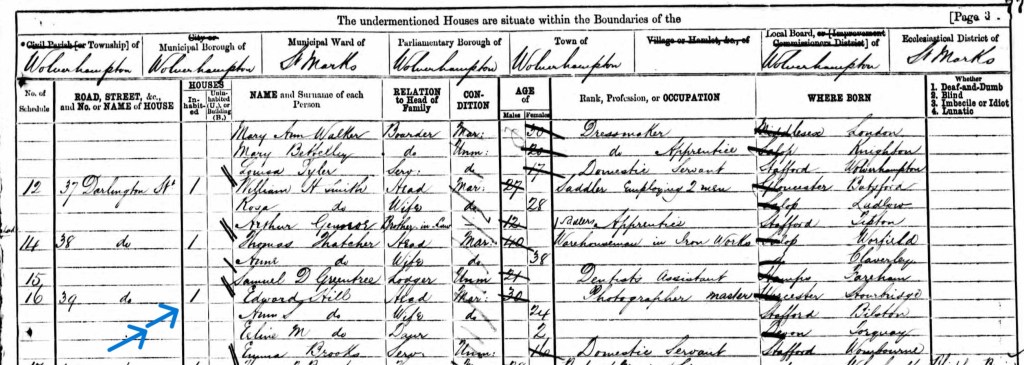 The undermentioned Houses are situate within the Boundaries of the [Page 3.
Civil Parish [or Township] of City or Municipal Borough of Municipal Ward of Parliamentary Borough of Town of Village or Hamlet, &c., of Local Board, or [Improvement Commissioners District] of Ecclesiastical District of
Wolverhampton Wolverhampton St Marks Wolverhampton Wolverhampton Wolverhampton St Marks
No. of Schedule ROAD, STREET, &c., and No. or NAME of HOUSE HOUSES Inhabited Uninhabited (U.), or Building (B.) NAME and Surname of each Person RELATION to Head of Family CONDITION AGE of Males Females Rank, Profession, or OCCUPATION WHERE BORN Whether 1. Deaf-and-Dumb 2. Blind 3. Imbecile or Idiot 4. Lunatic
Mary Ann Walker Boarder Mar: 30 Dressmaker Middlesex London
Mary do Unm: 20 do Apprentice Salop Knighton
Louisa Tyler Serv: do 17 Domestic Servant Stafford Wolverhampton
12 37 Darlington St 1 William H Smith Head Mar: 27 Saddler Employing 2 men Gloucester
Rosa do Wife do 28 Salop Ludlow
Arthur Brother in Law 12 Apprentice Stafford Tipton
14 38 do 1 Thomas Thatcher Head Mar: 40 Warehouseman in Iron Works Salop Worfield
Anne do Wife do 38 do Claverley
15 Samuel D Greentree Lodger Unm 21 Dentists Assistant Hamps Fareham
16 39 do 1 Edward Hill Head Mar: 30 Photographer master Worcester Stourbridge
Ann S do Wife do 24 Stafford Bilston
Eveline M do Daur 2 Devon Torquay
Emma Brooks Serv Unm: 16 Domestic Servant Stafford Wombourne